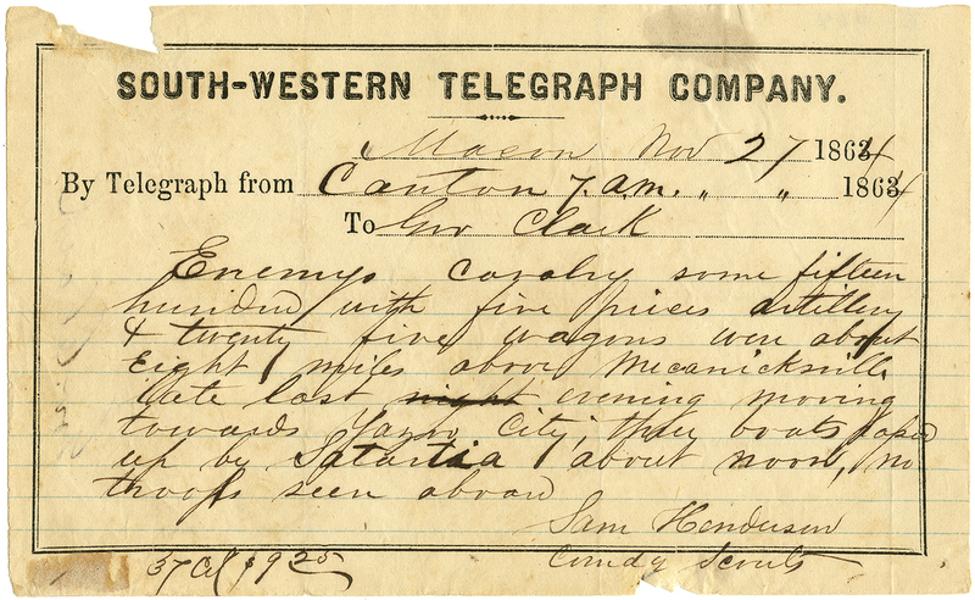 SOUTH-WESTERN TELEGRAPH COMPANY.
Macon Nov 27 1864
By Telegraph from Canton 7. a.m. " " 1864
To Gov Clark
Enemys cavalry some fifteen
hundred with five pieces artillery
& twenty five wagons were about
Eight miles above Mecanicksville
late last night evening moving
towards Yazoo City; they boats passed
up by Satartia about noon, no
troops seen aboard
Sam Henderson
Comdg Scouts
37 $9 25